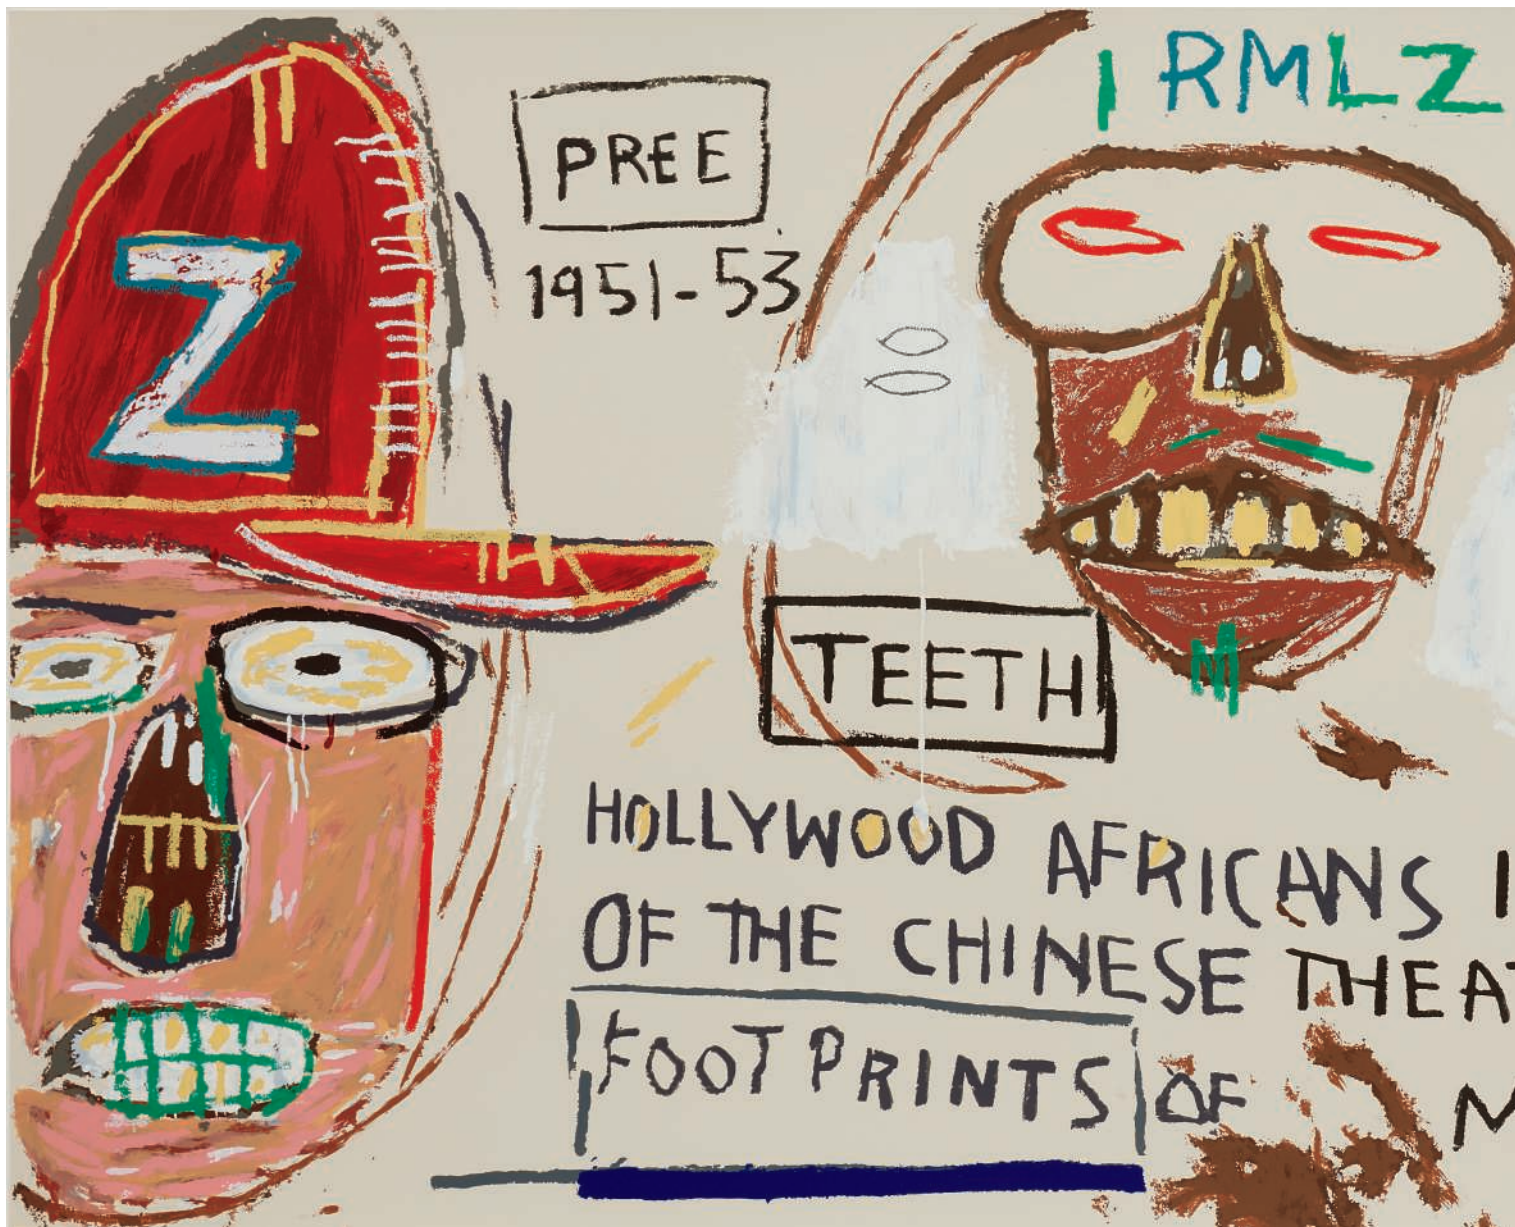 PREE
1951-53
I RMLZ
Z
TEETH
M
HOLLYWOOD AFRICANS I
OF THE CHINESE THEAT
FOOT PRINTS OF M